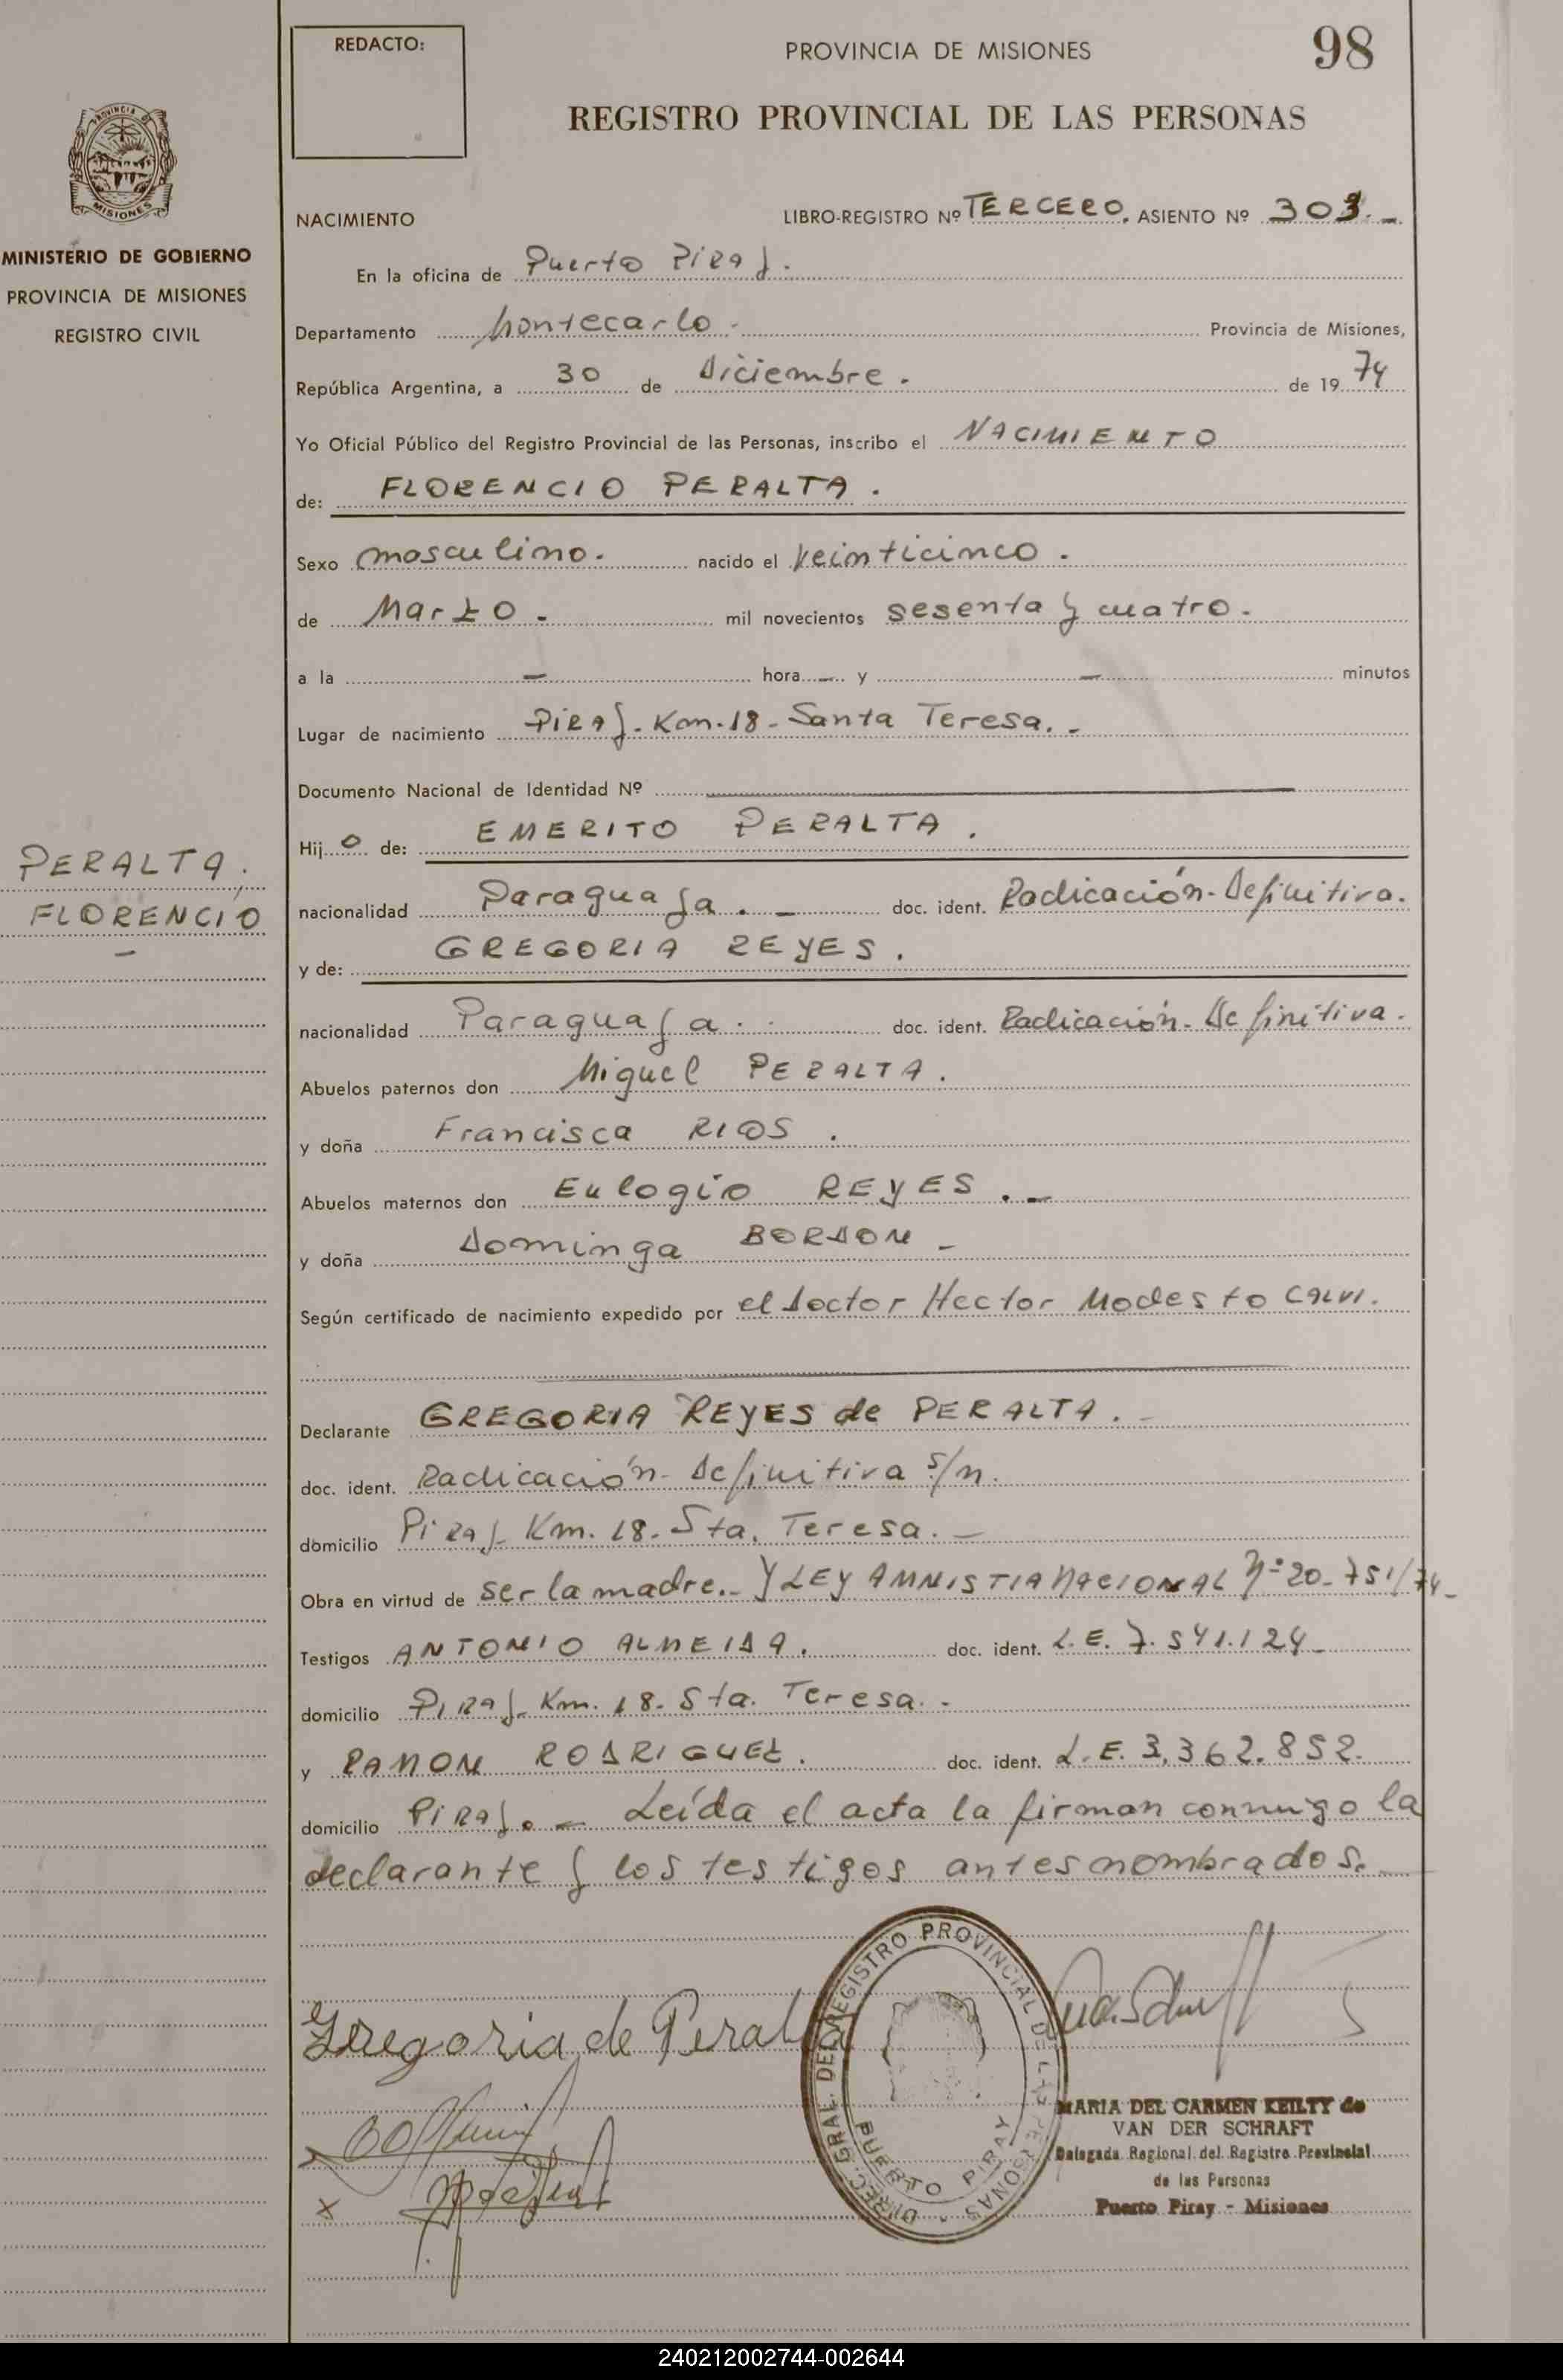 REDACTO:
PROVINCIA DE MISIONES
98
REGISTRO PROVINCIAL DE LAS PERSONAS
PROVINCIA DE
MISIONES
MINISTERIO DE GOBIERNO
PROVINCIA DE MISIONES
REGISTRO CIVIL
NACIMIENTO LIBRO-REGISTRO Nº TERCERO. ASIENTO Nº 303.-
En la oficina de Puerto Piray.
Departamento Montecarlo. Provincia de Misiones,
República Argentina, a 30 de Diciembre. de 19 74
Yo Oficial Público del Registro Provincial de las Personas, inscribo el NACIMIENTO
de: FLORENCIO PERALTA.
Sexo masculino. nacido el veinticinco.
de Marzo.- mil novecientos sesenta y cuatro.
a la - hora - y - minutos
Lugar de nacimiento Piray. Km. 18 - Santa Teresa. -
Documento Nacional de Identidad Nº
Hij o de: EMERITO PERALTA.
PERALTA.
FLORENCIO
-
nacionalidad Paraguaya. - doc. ident. Radicación-Definitiva.
y de: GREGORIA REYES.
nacionalidad Paraguaya. doc. ident. Radicación-Definitiva.
Abuelos paternos don Miguel PERALTA.
y doña Francisca RIOS.
Abuelos maternos don Eulogio REYES. -
y doña Dominga BORDON -
Según certificado de nacimiento expedido por el Doctor Hector Modesto CALVI.
Declarante GREGORIA REYES de PERALTA. -
doc. ident. Radicación-Definitiva s/n.
domicilio Piray- Km. 18. Sta. Teresa. -
Obra en virtud de ser la madre.- Y LEY AMNISTIA NACIONAL Nº 20-751/74-
Testigos ANTONIO ALMEIDA. doc. ident. L.E. 7.541.124-
domicilio Piray- Km. 18. Sta. Teresa. -
y RAMON RODRIGUEZ. doc. ident. L.E. 3,362.852.
domicilio Piray. - Leída el acta la firman conmigo la
declarante y los testigos antes nombrados.
Gregoria de Peralta
DIREC. GRAL. DEL REGISTRO PROVINCIAL DE LAS PERSONAS
PUERTO PIRAY
MARIA DEL CARMEN KEILTY de
VAN DER SCHRAFT
Delegada Regional del Registro Provincial
de las Personas
Puerto Piray - Misiones
x
240212002744-002644